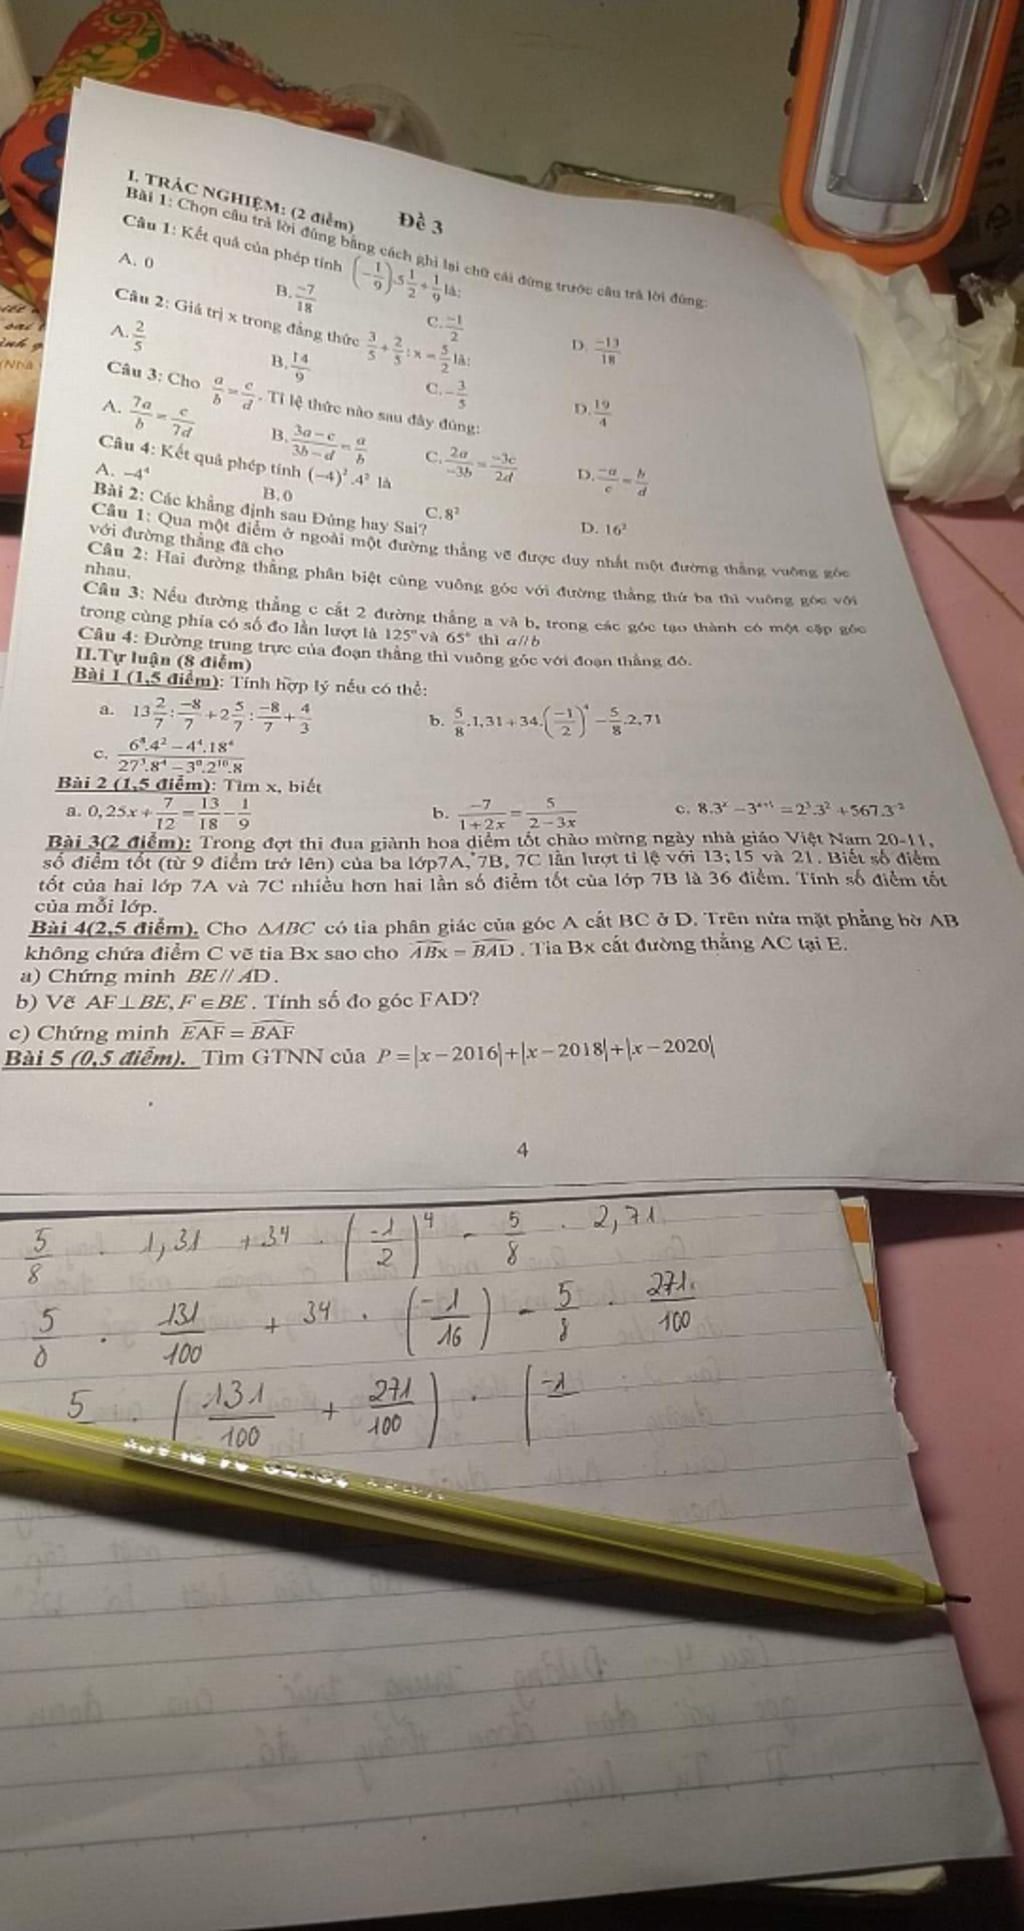 Đề 3
I. TRẮC NGHIỆM: (2 điểm)
Bài 1: Chọn câu trả lời đúng bằng cách ghi lại chữ cái đứng trước câu trả lời đúng:
Câu 1: Kết quả của phép tính (-1/9).5 1/2 + 1/9 là:
A. 0 B. -7/18 C. -1/2 D. -13/18
Câu 2: Giá trị x trong đẳng thức 3/5 + 2/5 : x = 5/2 là:
A. 2/5 B. 14/9 C. -3/5 D. 19/4
Câu 3: Cho a/b = c/d. Tỉ lệ thức nào sau đây đúng:
A. 7a/b = c/7d B. 3a-c/3b-d = a/b C. 2a/-3b = -3c/2d D. -a/c = b/d
Câu 4: Kết quả phép tính (-4)².4² là
A. -4⁴ B. 0 C. 8² D. 16²
Bài 2: Các khẳng định sau Đúng hay Sai?
Câu 1: Qua một điểm ở ngoài một đường thẳng vẽ được duy nhất một đường thẳng vuông góc
với đường thẳng đã cho
Câu 2: Hai đường thẳng phân biệt cùng vuông góc với đường thẳng thứ ba thì vuông góc với
nhau.
Câu 3: Nếu đường thẳng c cắt 2 đường thẳng a và b, trong các góc tạo thành có một cặp góc
trong cùng phía có số đo lần lượt là 125° và 65° thì a//b
Câu 4: Đường trung trực của đoạn thẳng thì vuông góc với đoạn thẳng đó.
II.Tự luận (8 điểm)
Bài 1 (1,5 điểm): Tính hợp lý nếu có thể:
a. 13 2/7 : -8/7 + 2 5/7 : -8/7 + 4/3 b. 5/8 .1,31 + 34.(-1/2)⁴ - 5/8 .2,71
c. 6⁸.4² - 4⁴.18⁴ / 27³.8⁴ - 3⁹.2¹⁰.8
Bài 2 (1,5 điểm): Tìm x, biết
a. 0,25x + 7/12 = 13/18 - 1/9 b. -7/1+2x = 5/2-3x c. 8.3ˣ - 3ˣ⁺¹ = 2³.3² + 567.3⁻²
Bài 3(2 điểm): Trong đợt thi đua giành hoa điểm tốt chào mừng ngày nhà giáo Việt Nam 20-11,
số điểm tốt (từ 9 điểm trở lên) của ba lớp7A, 7B, 7C lần lượt tỉ lệ với 13; 15 và 21. Biết số điểm
tốt của hai lớp 7A và 7C nhiều hơn hai lần số điểm tốt của lớp 7B là 36 điểm. Tính số điểm tốt
của mỗi lớp.
Bài 4(2,5 điểm). Cho ΔABC có tia phân giác của góc A cắt BC ở D. Trên nửa mặt phẳng bờ AB
không chứa điểm C vẽ tia Bx sao cho ABx = BAD. Tia Bx cắt đường thẳng AC tại E.
a) Chứng minh BE // AD.
b) Vẽ AF⊥BE, F∈BE. Tính số đo góc FAD?
c) Chứng minh EAF = BAF
Bài 5 (0,5 điểm). Tìm GTNN của P = |x - 2016| + |x - 2018| + |x - 2020|
4
5/8 . 1,31 + 34 . (-1/2)⁴ - 5/8 . 2,71
5/8 . 131/100 + 34 . (-1/16) - 5/8 . 271/100
5 . (131/100 + 271/100) . (-1